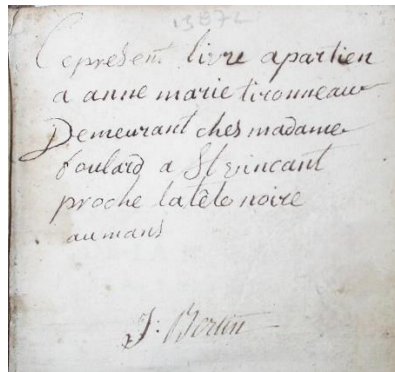 13872
Ce present livre apartien
a anne marie tironneau
Demeurant ches madame
foulard a St vincant
proche la tête noire
au mans
J: Bertin